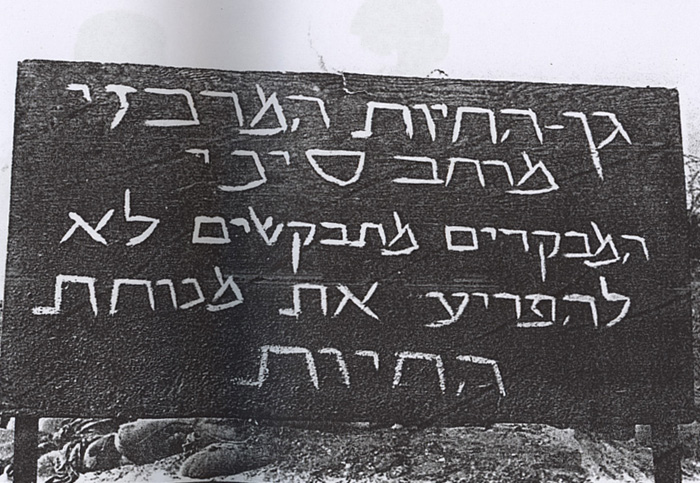 גן-החיות המרכזי
מרחב סיני
המבקרים מתבקשים לא
להפריע את מנוחת
החיות